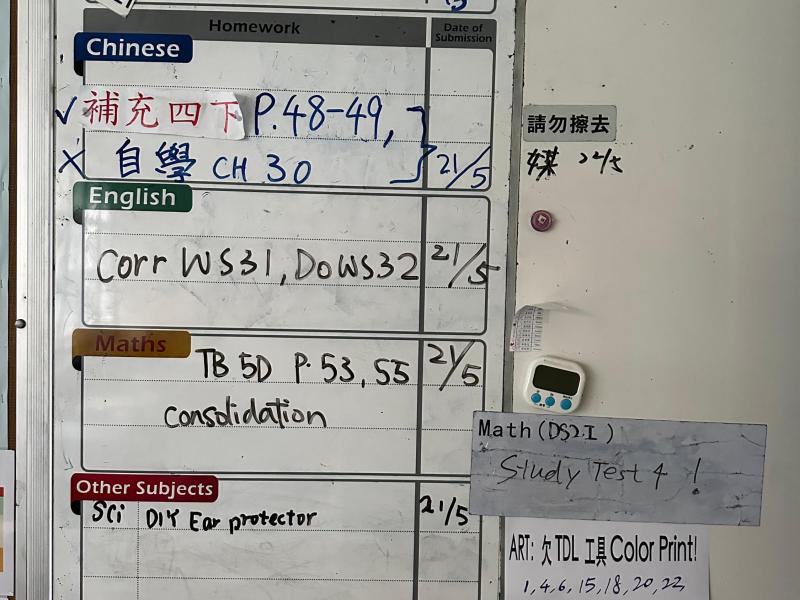 Homework
Date of
Submission
Chinese
✓ 補充四下 P.48-49,
× 自學 CH 30
21/5
English
Corr WS31, Do WS32
21/5
Maths
TB 5D P.53, 55
21/5
consolidation
Other Subjects
Sci DIY Ear protector
21/5
請勿擦去
21/5
Math(DS2.I)
Study Test 4 !
ART: 欠 TDL 工具 Color Print!
1,4,6,15,18,20,22